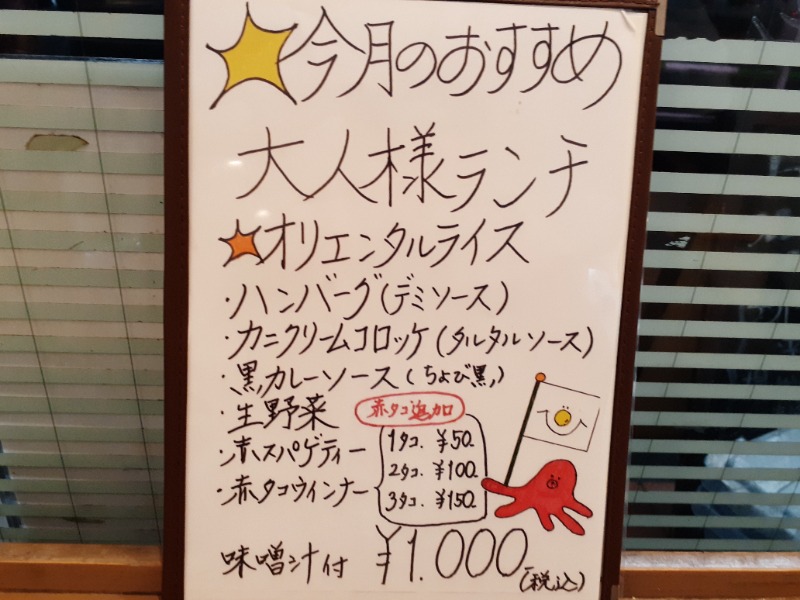 今月のおすすめ
大人様ランチ
オリエンタルライス
・ハンバーグ(デミソース)
・カニクリームコロッケ(タルタルソース)
・黒カレーソース(ちょび黒)
・生野菜
赤タコ追加
・赤スパゲティー
1タコ. ¥50.
2タコ. ¥100.
・赤タコウインナー
3タコ. ¥150.
味噌汁付 ¥1.000.(税込)